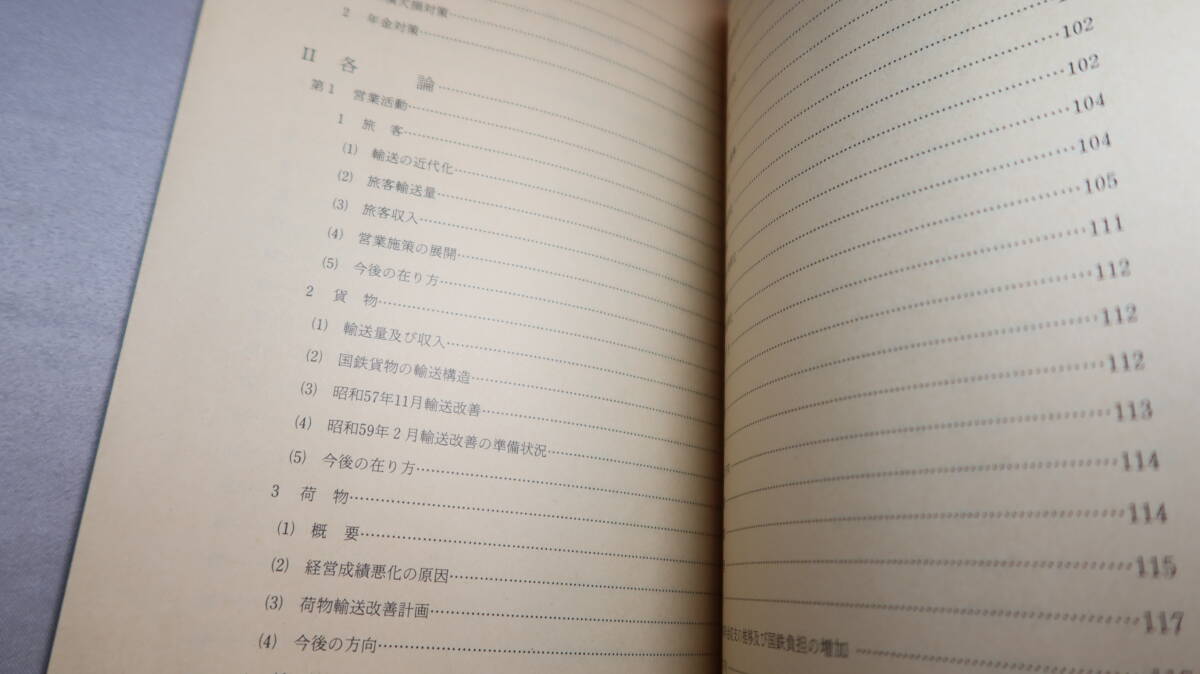 欠損対策
2 年金対策
II 各 論
第1 営業活動
1 旅 客
(1) 輸送の近代化
(2) 旅客輸送量
(3) 旅客収入
(4) 営業施策の展開
(5) 今後の在り方
2 貨 物
(1) 輸送量及び収入
(2) 国鉄貨物の輸送構造
(3) 昭和57年11月輸送改善
(4) 昭和59年2月輸送改善の準備状況
(5) 今後の在り方
3 荷 物
(1) 概 要
(2) 経営成績悪化の原因
(3) 荷物輸送改善計画
(4) 今後の方向
102
102
104
104
105
111
112
112
112
113
114
114
115
117
推移及び国鉄負担の増加